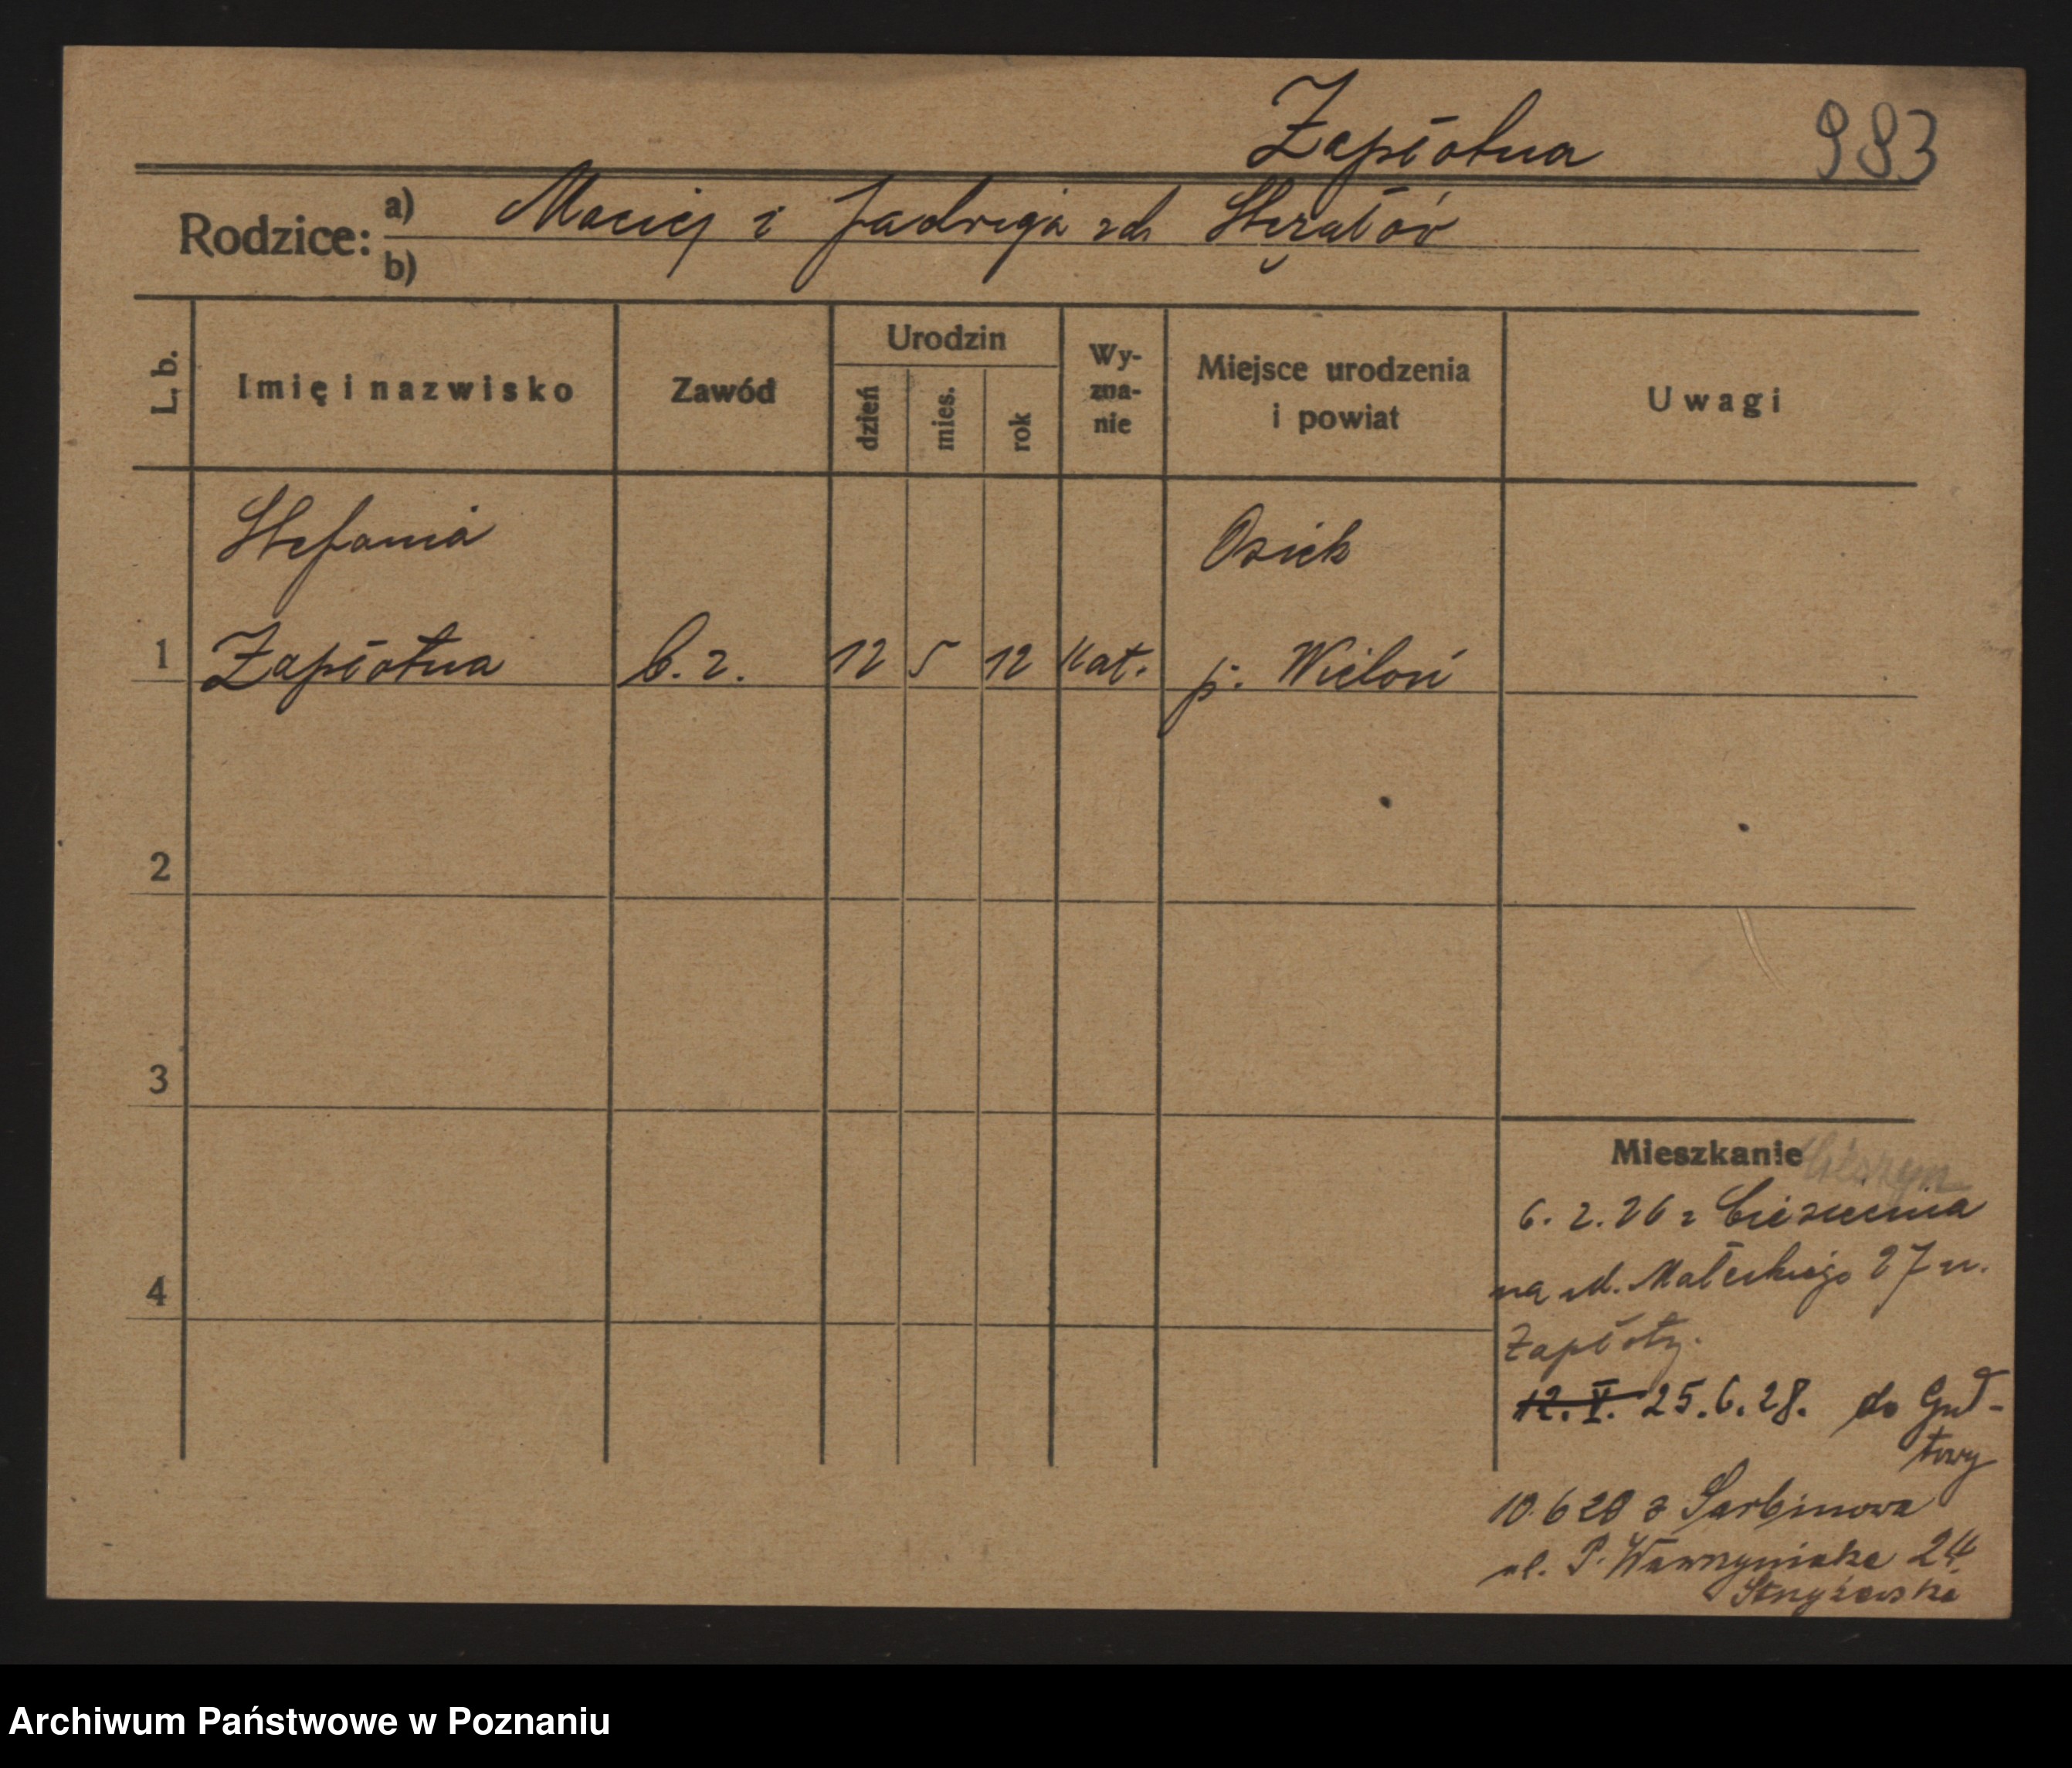 Zapłotna 983
Rodzice: a) Maciej i Jadwiga zd.
b)
L. b. Imię i nazwisko Zawód Urodzin dzień mies. rok Wy-zna-nie Miejsce urodzenia i powiat Uwagi
Stefania Osiek
1 Zapłotna b. z. 12 5 12 kat. p. Wieluń
2
3
Mieszkanie
6. 2. 26 z
4 na ul. Małeckiego 27 u.
Zapłoty.
12. V. 25. 6. 28. do Guł-
towy
10 6 28 z Sarbinowa
ul. P. Wawrzyniaka 24
Archiwum Państwowe w Poznaniu